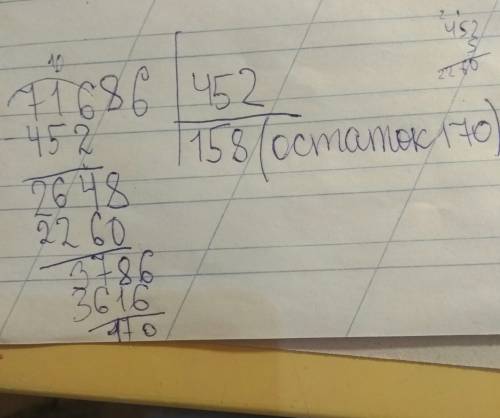 10
71686 452
452 158 (остаток 170)
2648
2260
3786
3616
170
452
5
2260